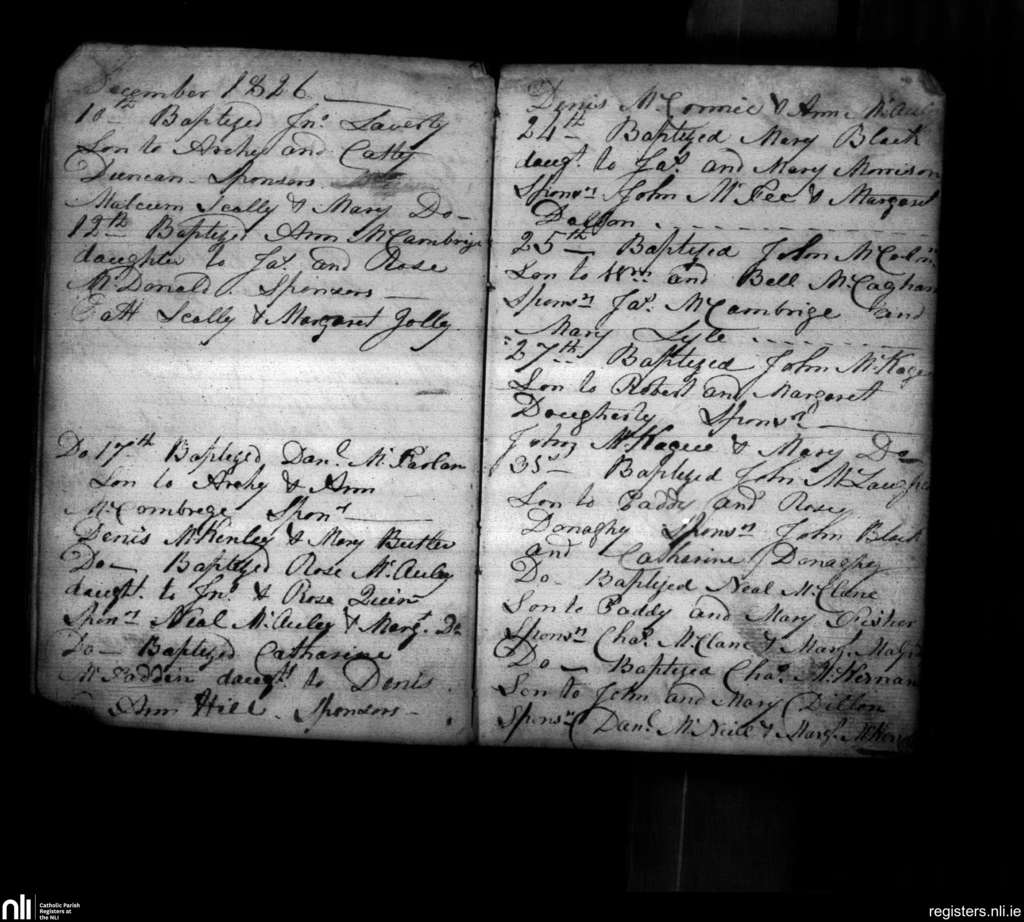 December 1826
10th Baptized Jno. Laverty
Son to Archy and Catty
Duncan Sponsors
Malcum Scally & Mary Do
12th Baptized Ann McCambrige
daughter to Jas. and Rose
McDonald Sponsors
Catt Scally & Margaret Jolly
Do 17th Baptized Danl. McParlan
Son to Archy & Ann
McCombrege Sponrs
Denis McKenley & Mary Butler
Do Baptized Rose McAuley
daught. to Jno. & Rose Quinn
Sponrs Neal McAuley & Margt. Do
Do Baptized Catharine
McFaddin daught. to Denis
Ann Hill Sponsors
Denis McCormic & Ann McAul
24th Baptized Mary Black
daugt. to Jas. and Mary Morrison
Sponsrs John McPee & Margaret
Dalton
25th Baptized John McColm
Son to Wm and Bell McCaghan
Sponsrs Jas. McCambrige and
Mary Lyle
27th Baptized John McKague
Son to Robert and Margaret
Dougherty Sponsrs
John McKague & Mary Do
Baptized John McLaugh
Son to Paddy and Rosey
Donaghy Sponsrs John Black
and Catharine Donaghy
Do Baptized Neal McClane
Son to Paddy and Mary
Sponsrs Chas. McClane & Margt.
Do Baptized Chas. McKernan
Son to John and Mary Dillon
Sponsrs Danl. McNeill & Margt. McKern
nli
Catholic Parish
Registers at
the NLI
registers.nli.ie